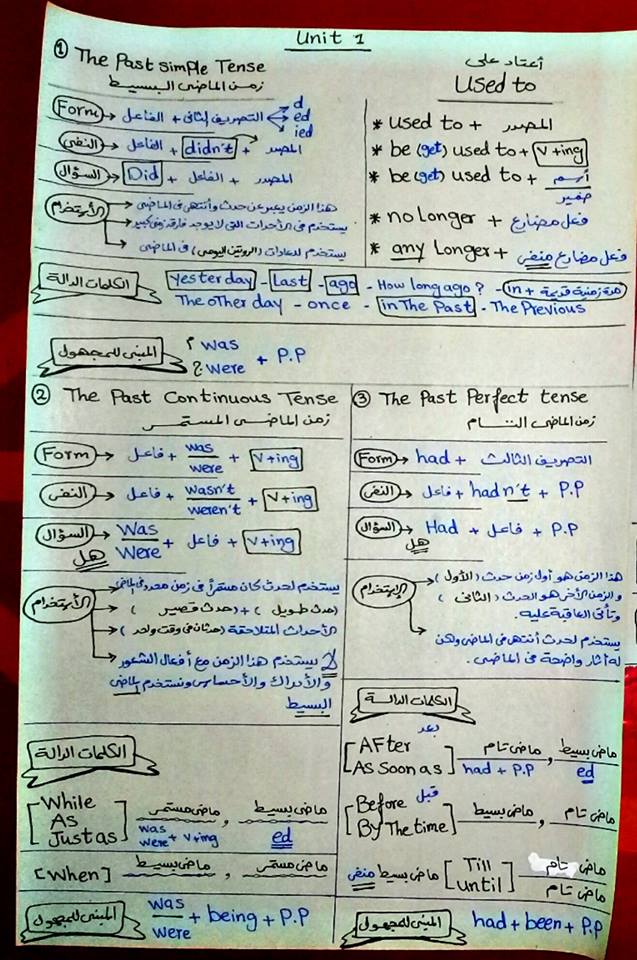 Unit 1
① The Past simple Tense
زمن الماضى البسيط
Form → الفاعل + التصريف الثانى d ed ied
النفى → الفاعل + didn't + المصدر
السؤال → Did + الفاعل + المصدر
الأستخدام → هذا الزمن يعبر عن حدث وأنتهى فى الماضى
يستخدم فى الأحداث التى لا يوجد فارق زمنى كبير
يستخدم للعادات (الروتين اليومى) فى الماضى
أعتاد على
Used to
* used to + المصدر
* be (get) used to + v+ing
* be (get) used to + أسم
ضمير
* no longer + فعل مضارع
* any Longer + فعل مضارع منفى
الكلمات الدالة
yesterday - Last - ago - How long ago? - in + مدة زمنية قديمة
The other day - once - in The Past - The Previous
المبنى للمجهول
was
were + P.P
② The Past Continuous Tense
زمن الماضى المستمر
Form → فاعل + was were + v+ing
النفى → فاعل + wasn't weren't + v+ing
السؤال → Was Were + فاعل + v+ing
هل
الأستخدام → يستخدم لحدث كان مستمراً فى زمن محدد فى الماضى
(حدث طويل) + (حدث قصير)
الأحداث المتلاحقة (حدثان فى وقت واحد)
لا يستخدم هذا الزمن مع أفعال الشعور
والأدراك والأحساس ونستخدم الماضى
البسيط
الكلمات الدالة
[While As Just as] ماضى مستمر , ماضى بسيط
was were + v+ing ed
[When] ماضى بسيط , ماضى مستمر
المبنى للمجهول
was were + being + P.P
③ The Past Perfect tense
زمن الماضى التام
Form → had + التصريف الثالث
النفى → فاعل + hadn't + P.P
السؤال → Had + فاعل + P.P
هل
الإستخدام → هذا الزمن هو أول زمن حدث (الأول)
والزمن الأخر هو الحدث (الثانى)
وتأتى العاقبة عليه.
يستخدم لحدث أنتهى فى الماضى ولكن
له أثار واضحة فى الماضى.
الكلمات الدالة
بعد
[AFter As Soon as] ماضى تام , ماضى بسيط
had + P.P ed
قبل
[Before By The time] ماضى بسيط , ماضى تام
ماضى بسيط منفى [Till until] ماضى تام
ماضى تام
المبنى للمجهول
had + been + P.P